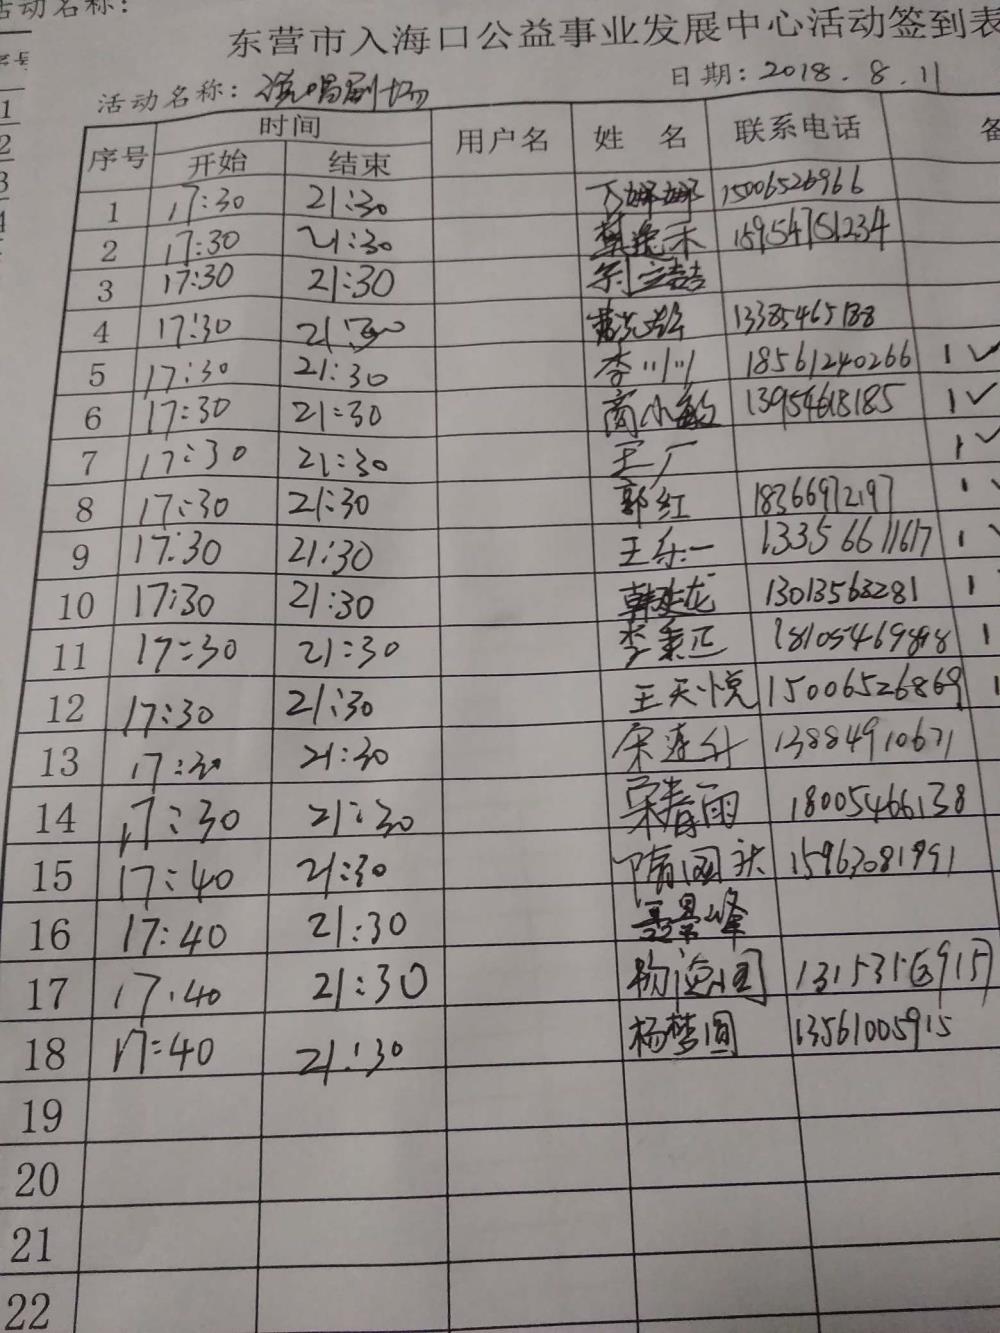 活动名称：
东营市入海口公益事业发展中心活动签到表
活动名称： 日期：2018.8.11
序号 时间 用户名 姓名 联系电话 备
开始 结束
1 17:30 21:30 丁娜娜 15006526966
2 17:30 21:30 15954751234
3 17:30 21:30
4 17:30 21:30 13385465188
5 17:30 21:30 李川川 18561240266 1 ✓
6 17:30 21:30 商小敏 13954618185 1 ✓
7 17:30 21:30 王广 1 ✓
8 17:30 21:30 郭红 18366972197 1
9 17:30 21:30 王乐一 13356611617 1
10 17:30 21:30 韩建龙 13013563281 1
11 17:30 21:30 李秉正 18105469898 1
12 17:30 21:30 王天悦 15006526869 1
13 17:30 21:30 宋连升 13884910671
14 17:30 21:30 宋春雨 18005466138
15 17:40 21:30 隋国庆 15963081991
16 17:40 21:30 聂景峰
17 17:40 21:30
18 17:40 21:30 杨梦圆 13561005915
19
20
21
22